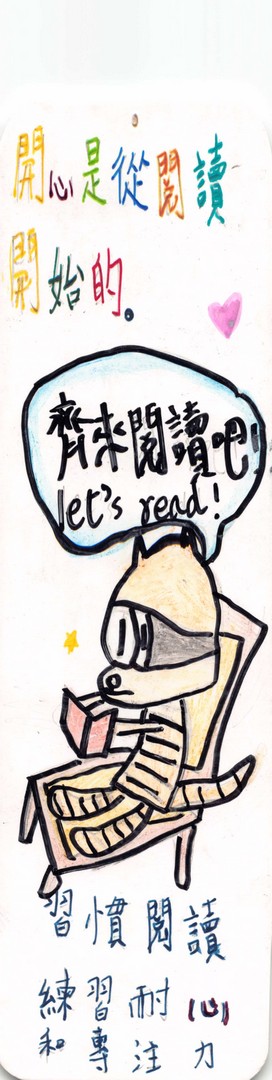 開心是從閱讀
開始的。
齊來閱讀吧!
let's read!
習慣閱讀
練習耐心
和專注力